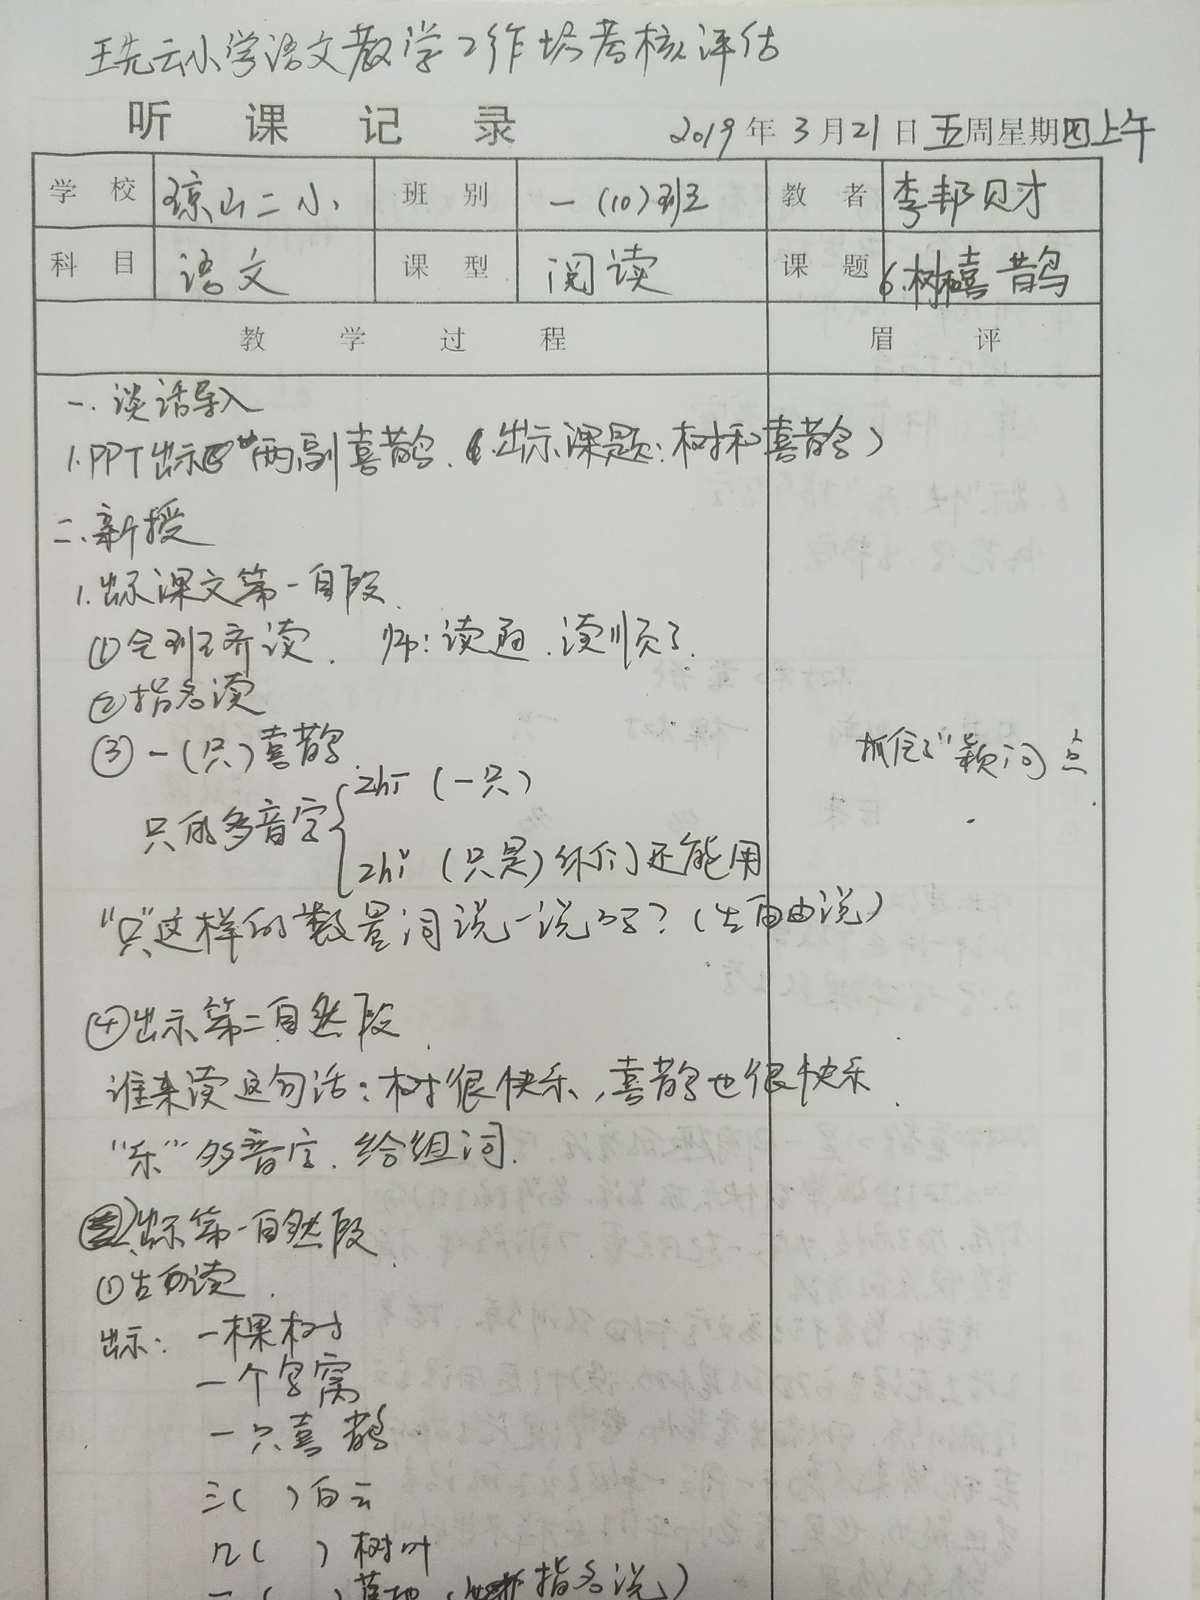 王先云小学语文教学工作坊考核评估
听课记录 2019年3月21日五周星期四上午
学校 琼山二小 班别 一(10)班 教者 李邦财
科目 语文 课型 阅读 课题 6.树和喜鹊
教学过程 眉评
一.谈话导入
1.PPT出示 两副喜鹊.(出示课题:树和喜鹊)
二.新授
1.出示课文第一自段.
①全班齐读. 师:读通.读顺了.
②指名读
③一(只)喜鹊.
抓住了"疑问点
只的多音字 zhī (一只)
zhǐ (只是)你们还能用
"只"这样的数量词说一说吗?(生自由说)
④出示第二自然段.
谁来读这句话:树很快乐,喜鹊也很快乐.
"乐"多音字.给组词.
出示第一自然段
①生自读.
出示: 一棵树
一个鸟窝
一只喜鹊
三( )白云
几( )树叶
一( ) 指名说)